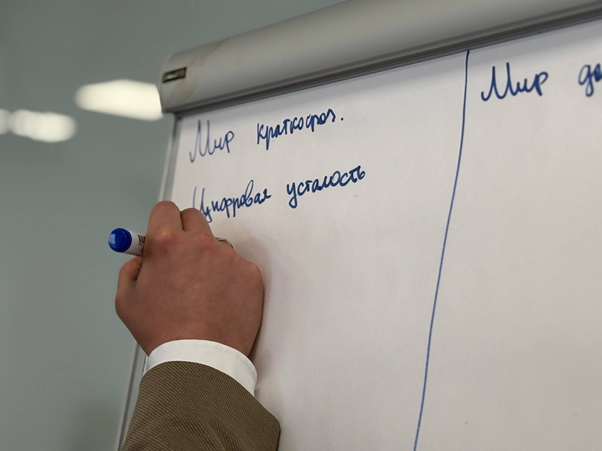 Мир краткосроч.
Цифровая усталость
Мир